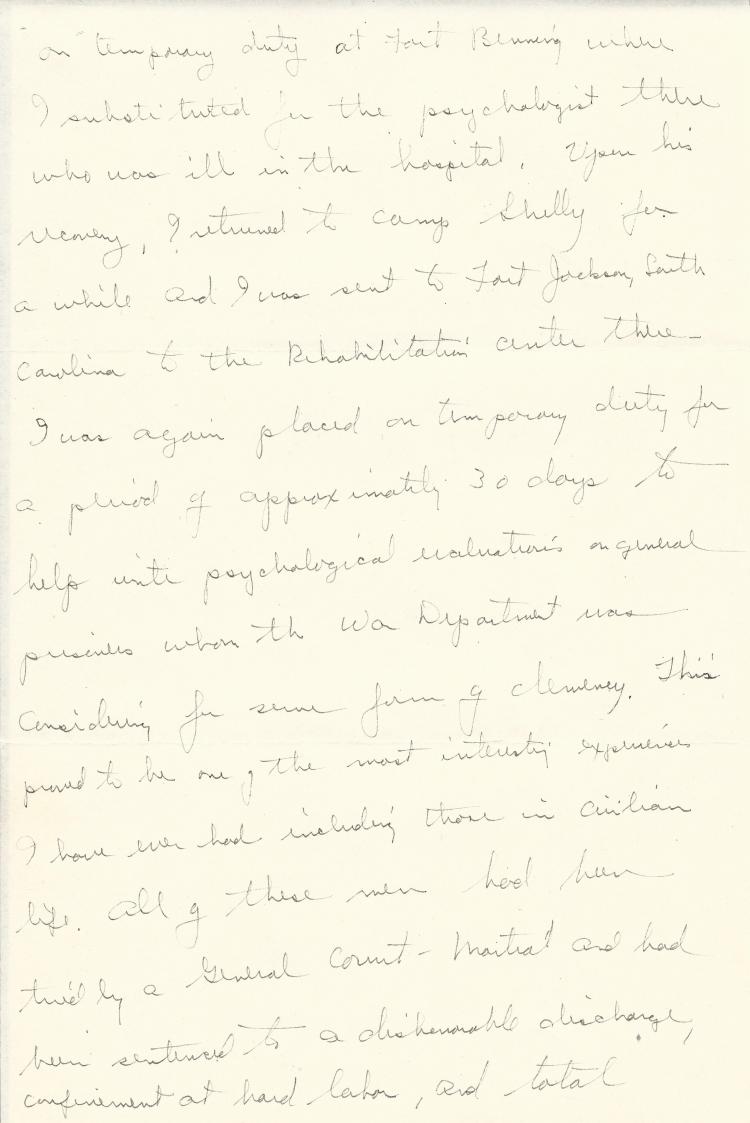 on temporary duty at Fort Benning where
I substituted for the psychologist there
who was ill in the hospital. Upon his
recovery, I returned to Camp Shelly for
a while and I was sent to Fort Jackson, South
Carolina to the Rehabilitation center there -
I was again placed on temporary duty for
a period of approximately 30 days to
help write psychological evaluations on general
prisoners whom the War Department was
considering for some form of clemency. This
proved to be one of the most interesting experiences
I have ever had including those in civilian
life. All of these men had been
tried by a General Court-Martial and had
been sentenced to a dishonorable discharge,
confinement at hard labor, and total